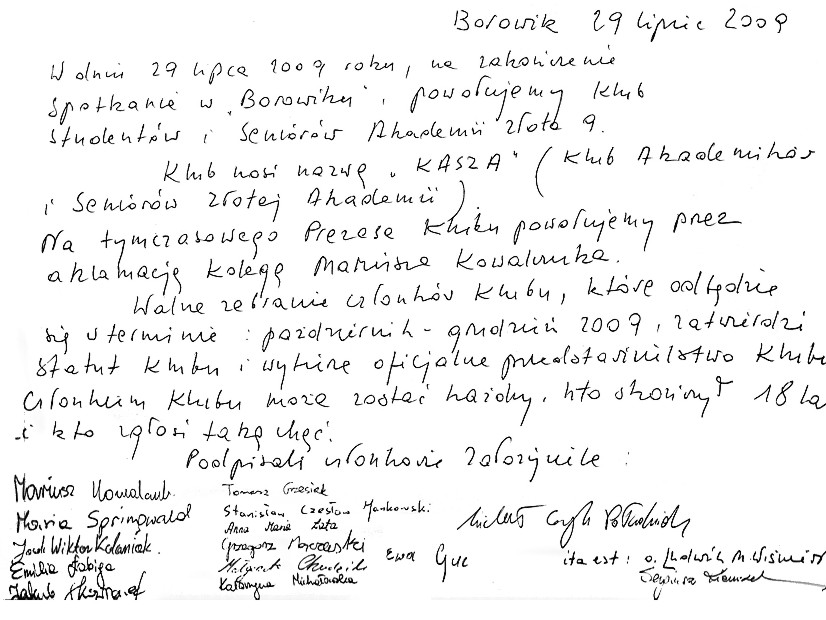 Borowik 29 lipiec 2009
W dniu 29 lipca 2009 roku, na zakończenie
spotkania w „Borowiku", powołujemy Klub
Studentów i Seniorów Akademii Złota 9.
Klub nosi nazwę „KASZA" (Klub Akademików
i Seniorów Złotej Akademii).
Na tymczasowego Prezesa Klubu powołujemy przez
aklamację kolegę Mariusza Kowalunka.
Walne zebranie członków Klubu, które odbędzie
się w terminie: październik - grudzień 2009, zatwierdzi
statut Klubu i wybierze oficjalne przedstawicielstwo Klubu
Członkiem Klubu może zostać każdy, kto skończył 18 la
i kto zgłosi taką chęć.
Podpisali członkowie założyciele:
Mariusz
Maria Springwald
Jacek Wiktor Kolaniak
Emilia Łabiga
Jakub
Tomasz Grzesiek
Stanisław Czesław Mankowski
Anna Maria Zięta
Grzegorz
Katarzyna Michałowska
Ewa Guc
Michał
ita est: o. Ludwik M.